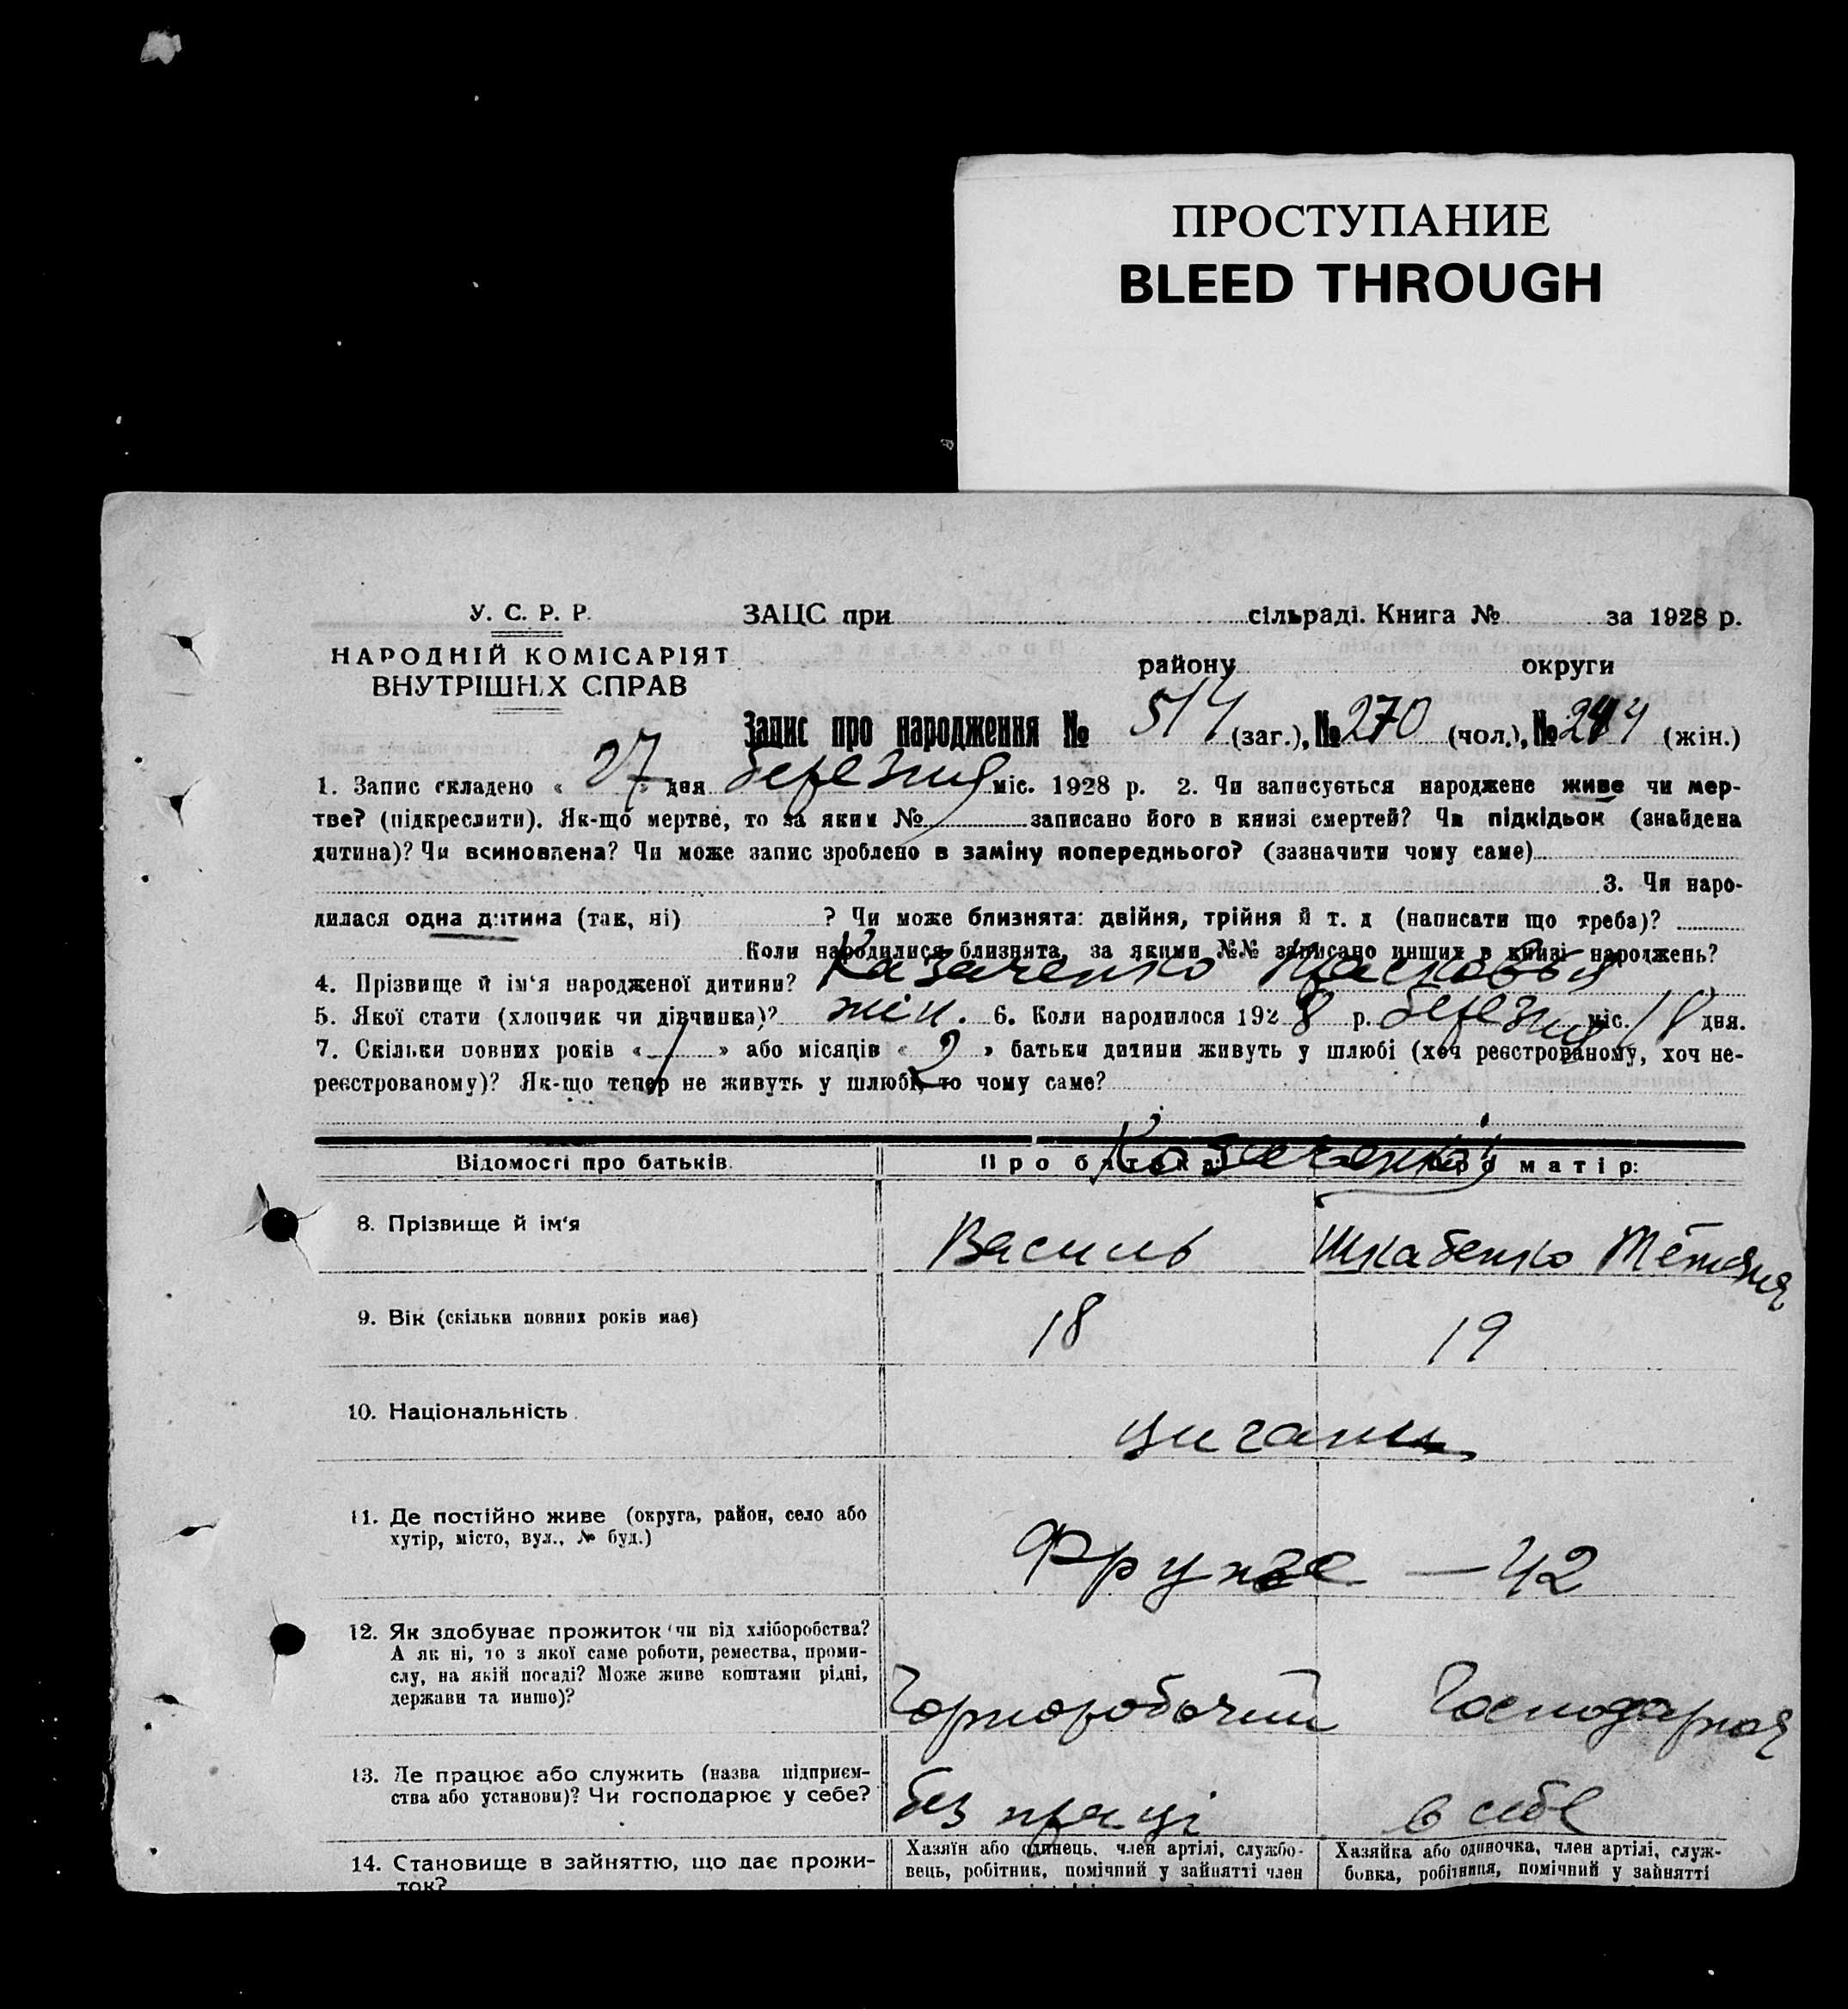 ПРОСТУПАНИЕ
BLEED THROUGH
У. С. Р. Р. ЗАЦС при сільраді. Книга № за 1928 р.
НАРОДНІЙ КОМІСАРІЯТ району округи
ВНУТРІШНІХ СПРАВ
Запис про народження № 514 (заг.), № 270 (чол.), № 244 (жін.)
1. Запис складено « 27 » дня березня міс. 1928 р. 2. Чи записується народжене живе чи мер-
тве? (підкреслити). Як-що мертве, то за яким № записано його в книзі смертей? Чи підкідьок (знайдена
дитина)? Чи всиновлена? Чи може запис зроблено в заміну попереднього? (зазначити чому саме)
3. Чи наро-
дилася одна дитина (так, ні) ? Чи може близнята: двійня, трійня й т. д (написати що треба)?
Коли народилися близнята, за якими №№ записано инших в книзі народжень?
4. Прізвище й ім‘я народженої дитини? Казаченко Прасковья
5. Якої стати (хлопчик чи дівчинка)? жін. 6. Коли народилося 1928 р. березня міс. 18 дня.
7. Скільки повних років « / » або місяців « 2 » батьки дитини живуть у шлюбі (хоч реєстрованому, хоч не-
реєстрованому)? Як-що тепер не живуть у шлюбі, то чому саме?
Відомості про батьків. Про батька: Про матір:
Казаченко
8. Прізвище й ім‘я Василь Шкабенко Тетяна
9. Вік (скільки повних років має) 18 19
10. Національність. цигани
11. Де постійно живе (округа, район, село або
хутір, місто, вул., № буд.) Фрунзе — 42
12. Як здобуває прожиток чи від хліборобства?
А як ні, то з якої саме роботи, ремества, проми-
слу, на якій посаді? Може живе коштами рідні,
держави та инше)? Чорноробочий Господарноя
13. Де працює або служить (назва підприєм-
ства або установи)? Чи господарює у себе? без праці в себе
14. Становище в зайняттю, що дає прожи-
ток?
Хазяїн або одинець, член артілі, службо-
вець, робітник, помічний у зайнятті член
Хазяйка або одиночка, член артілі, служ-
бовка, робітниця, помічний у зайнятті